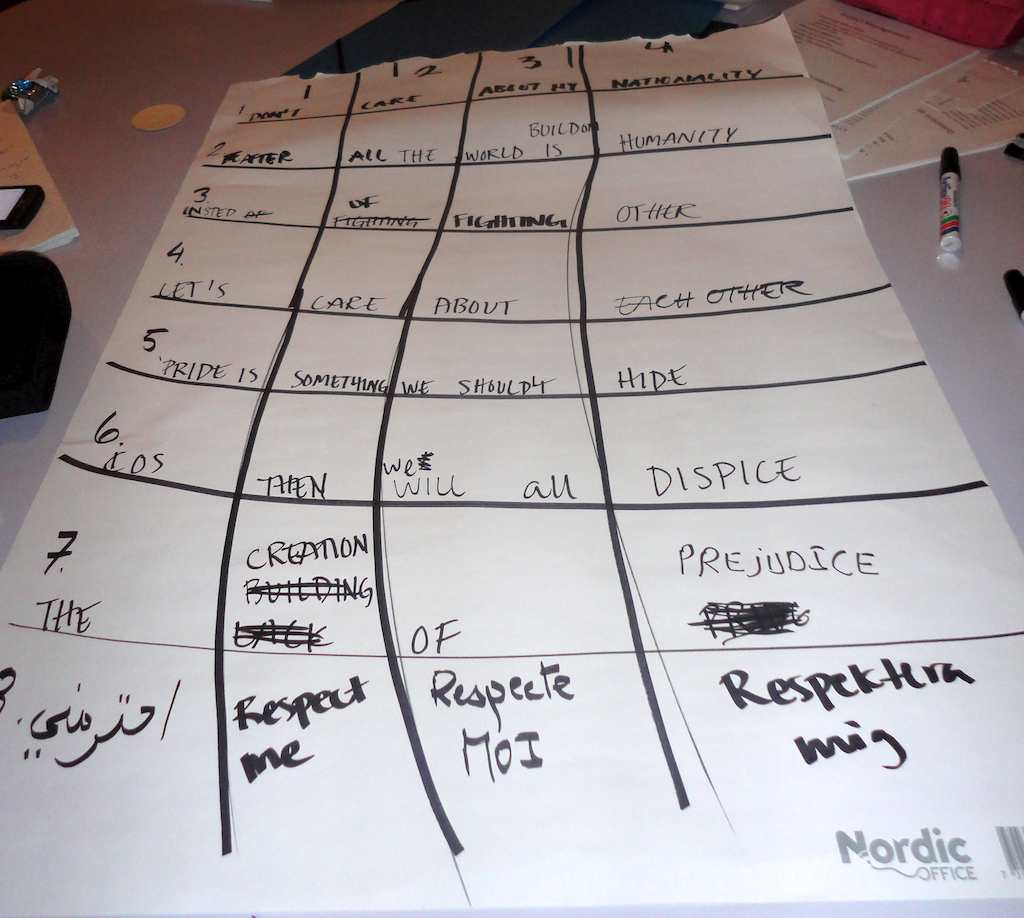 1 2 3 4
1 DON'T CARE ABOUT MY NATIONALITY
2 ALL THE WORLD IS BUILD ON HUMANITY
3. INSTED OF FIGHTING OTHER
4. LET'S CARE ABOUT EACH OTHER
5 PRIDE IS SOMETHING WE SHOULDT HIDE
6. COS THEN we WILL all DISPICE
7. THE CREATION OF PREJUDICE
BUILDING
احترمني Respect Respecte Respektera
me MOI mig
Nordic
OFFICE